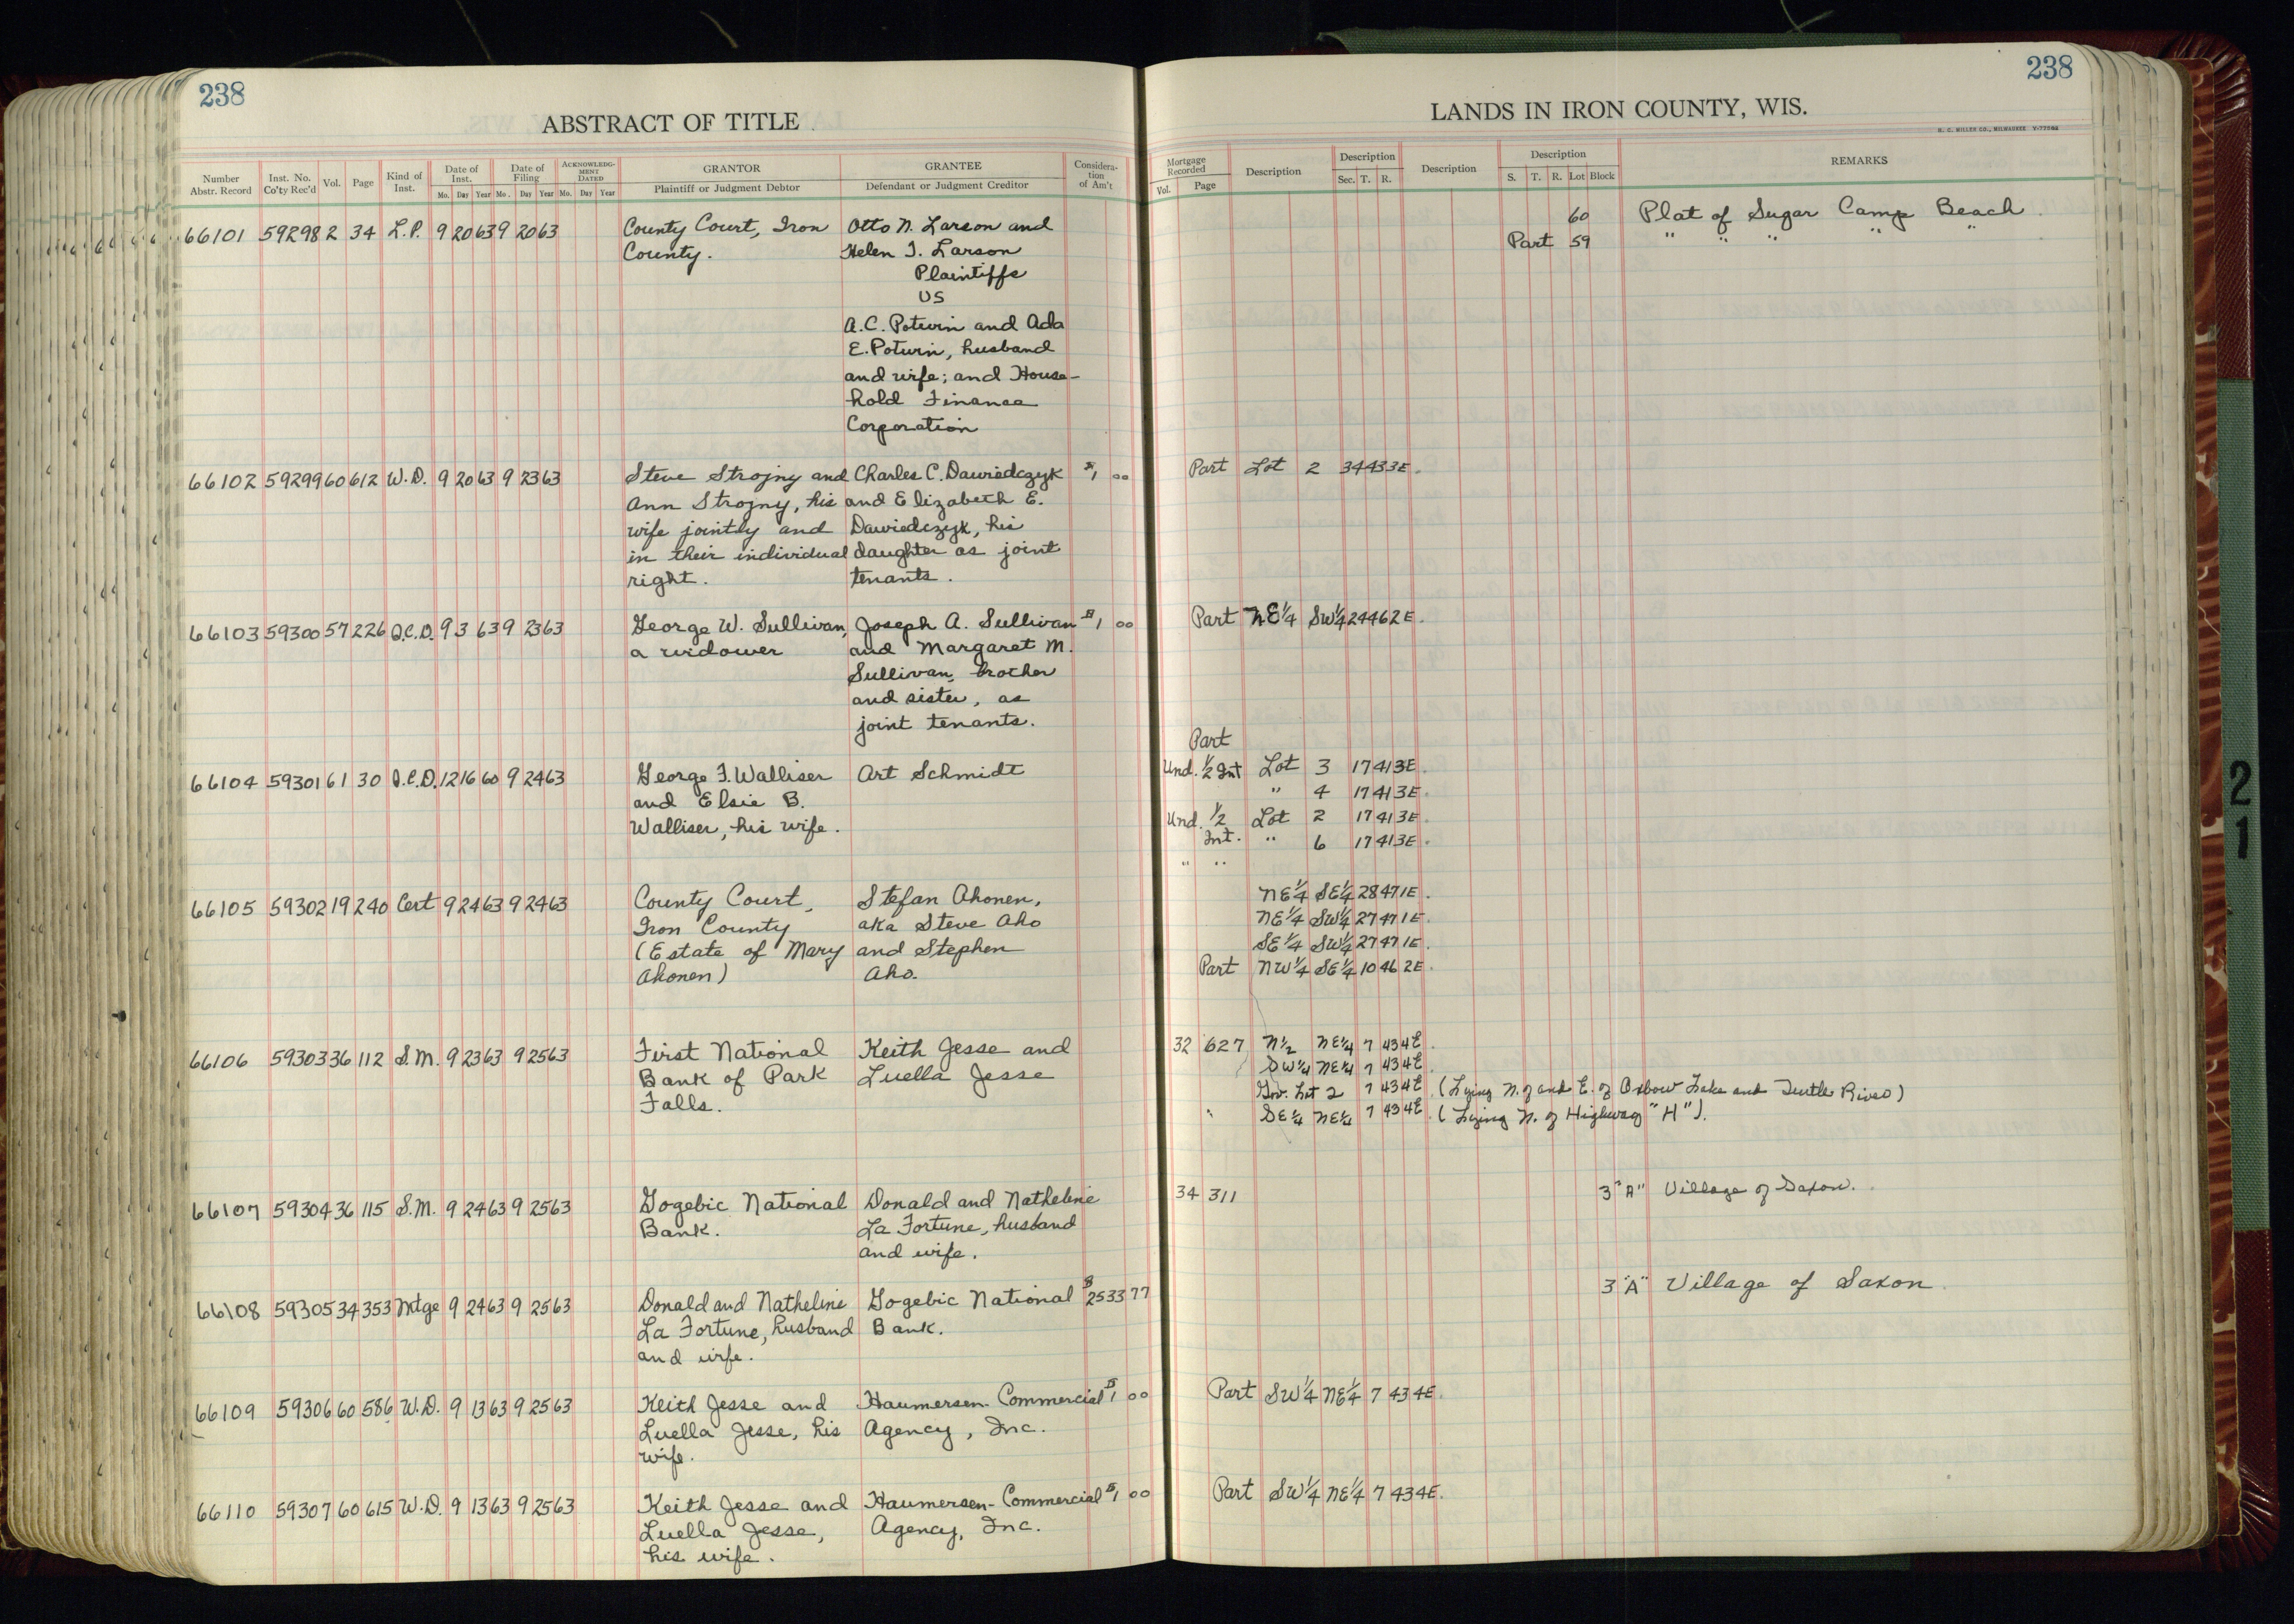 238
238
ABSTRACT OF TITLE
LANDS IN IRON COUNTY, WIS.
H. C. MILLER CO., MILWAUKEE
Number Abstr. Record | Inst. No. Co'ty Rec'd | Vol. | Page | Kind of Inst. | Date of Inst. Mo. Day Year | Date of Filing Mo. Day Year | ACKNOWLEDGMENT DATED Mo. Day Year | GRANTOR Plaintiff or Judgment Debtor | GRANTEE Defendant or Judgment Creditor | Considera-tion of Am't
Mortgage Recorded Vol. Page | Description | Description Sec. T. R. | Description | Description S. T. R. Lot Block | REMARKS
66101 59298 2 34 L.P. 9 20 63 9 20 63 County Court, Iron Otto N. Larson and
County. Helen I. Larson
Plaintiffs
vs
A.C. Potvin and Ada
E. Potvin, husband
and wife; and House-
hold Finance
Corporation
60 Plat of Sugar Camp Beach
Part 59 " " " " "
66102 59299 60 612 W.D. 9 20 63 9 23 63 Steve Strojny and Charles C. Dawiedczyk $1 00
Ann Strojny, his and Elizabeth E.
wife jointly and Dawiedczyk, his
in their individual daughter as joint
right. tenants.
Part Lot 2 34 43 3E.
66103 59300 57 226 Q.C.D. 9 3 63 9 23 63 George W. Sullivan, Joseph A. Sullivan $1 00
a widower and Margaret M.
Sullivan, brother
and sister, as
joint tenants.
Part NE¼ SW¼ 24 46 2E.
66104 59301 61 30 Q.C.D. 12 16 60 9 24 63 George F. Walliser Art Schmidt
and Elsie B.
Walliser, his wife.
Part
Und. ½ Int Lot 3 17 41 3E.
" 4 17 41 3E.
Und. ½ Lot 2 17 41 3E.
Int. " 6 17 41 3E.
" "
66105 59302 19 240 Cert 9 24 63 9 24 63 County Court, Stefan Ahonen,
Iron County aka Steve Aho
(Estate of Mary and Stephen
Ahonen) Aho.
NE¼ SE¼ 28 47 1E.
NE¼ SW¼ 27 47 1E.
SE¼ SW¼ 27 47 1E.
Part NW¼ SE¼ 10 46 2E.
66106 59303 36 112 S.M. 9 23 63 9 25 63 First National Keith Jesse and
Bank of Park Luella Jesse
Falls.
32 627 N½ NE¼ 7 43 4E.
SW¼ NE¼ 7 43 4E
Gov. Lot 2 7 43 4E. (Lying N. of and E. of Oxbow Lake and Turtle River)
" SE¼ NE¼ 7 43 4E. (Lying N. of Highway "H").
66107 59304 36 115 S.M. 9 24 63 9 25 63 Gogebic National Donald and Natheline
Bank. La Fortune, husband
and wife.
34 311 3 "A" Village of Saxon.
66108 59305 34 353 Mtge 9 24 63 9 25 63 Donald and Natheline Gogebic National $2533 77
La Fortune, husband Bank.
and wife.
3 "A" Village of Saxon.
66109 59306 60 586 W.D. 9 13 63 9 25 63 Keith Jesse and Haumersen-Commercial $1 00
Luella Jesse, his Agency, Inc.
wife.
Part SW¼ NE¼ 7 43 4E.
66110 59307 60 615 W.D. 9 13 63 9 25 63 Keith Jesse and Haumersen-Commercial $1 00
Luella Jesse, Agency, Inc.
his wife.
Part SW¼ NE¼ 7 43 4E.
21